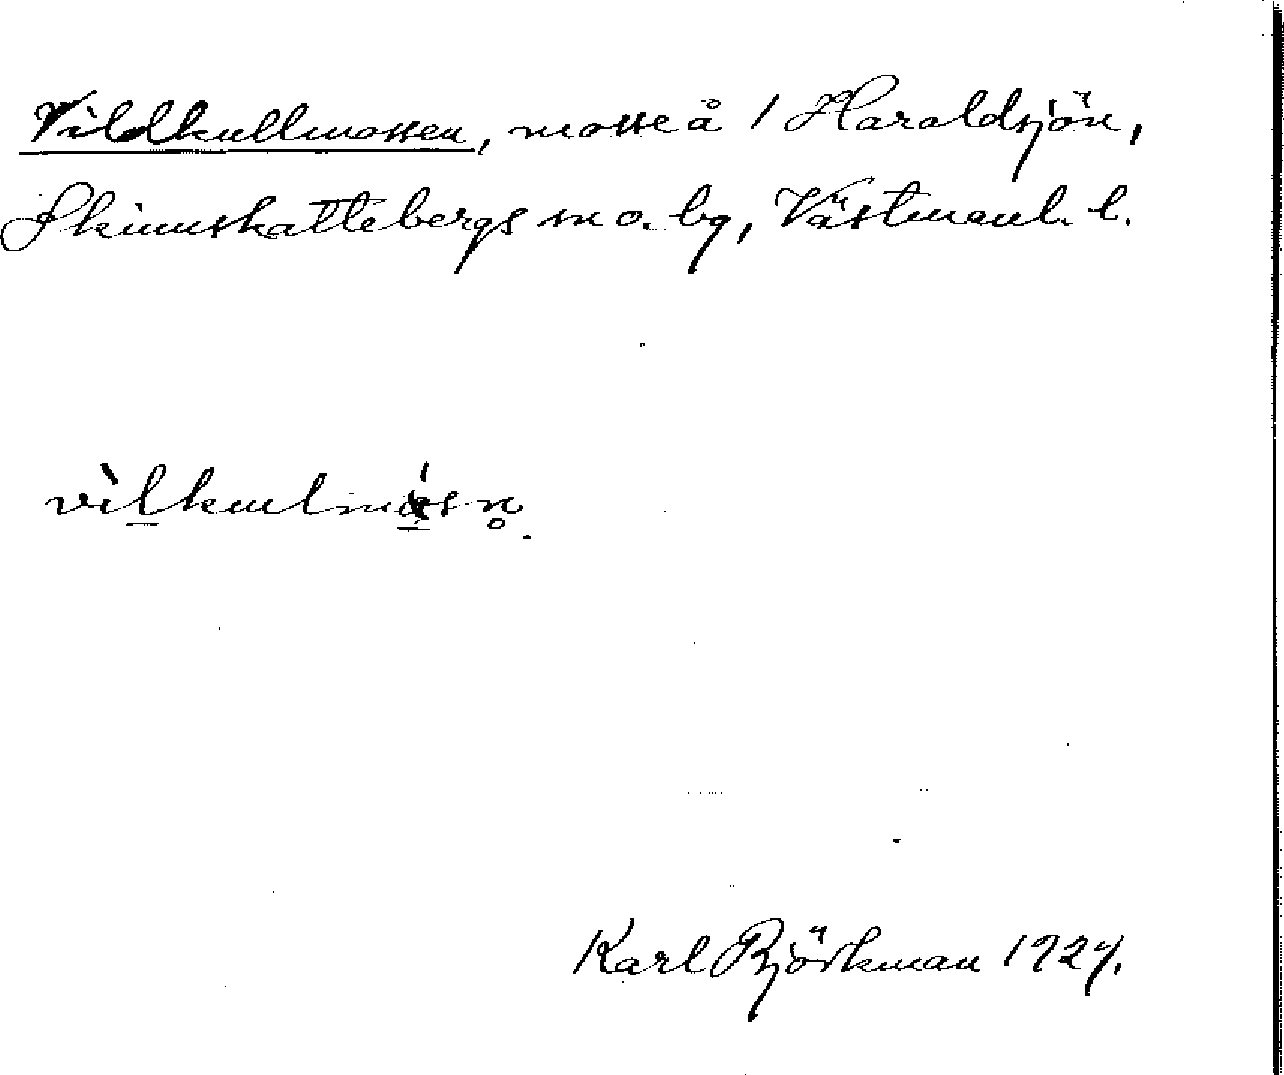 Vildkullmossen, mosse å / Haraldsjön,
Skinnskattebergs sn o. bg, Västmanl. l.
vìlkulmósn̥.
Karl Björkman 1924.